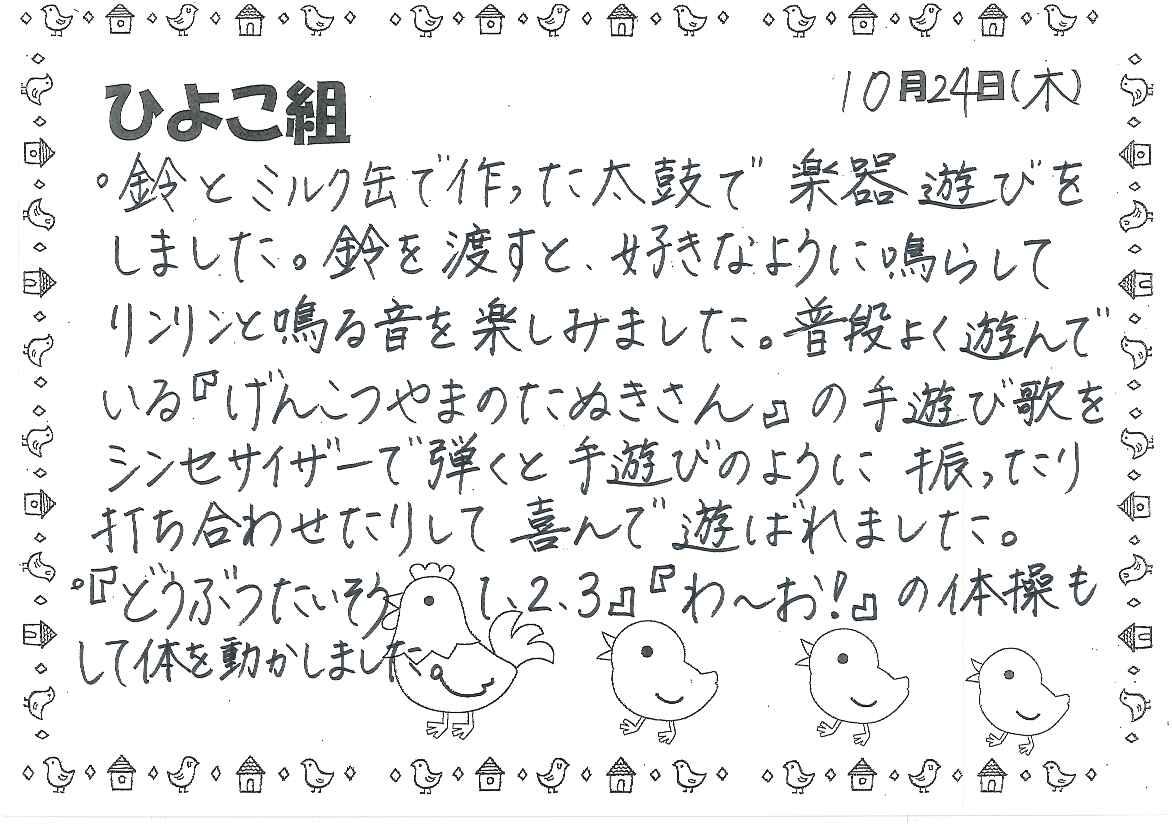 ひよこ組
10月24日(木)
。鈴とミルク缶で作った太鼓で楽器遊びを
しました。鈴を渡すと、好きなように鳴らして
リンリンと鳴る音を楽しみました。普段よく遊んで
いる『げんこつやまのたぬきさん』の手遊び歌を
シンセサイザーで弾くと手遊びのように振ったり
打ち合わせたりして喜んで遊ばれました。
。『どうぶつたいそう1、2、3』『わ〜お!』の体操も
して体を動かしました。